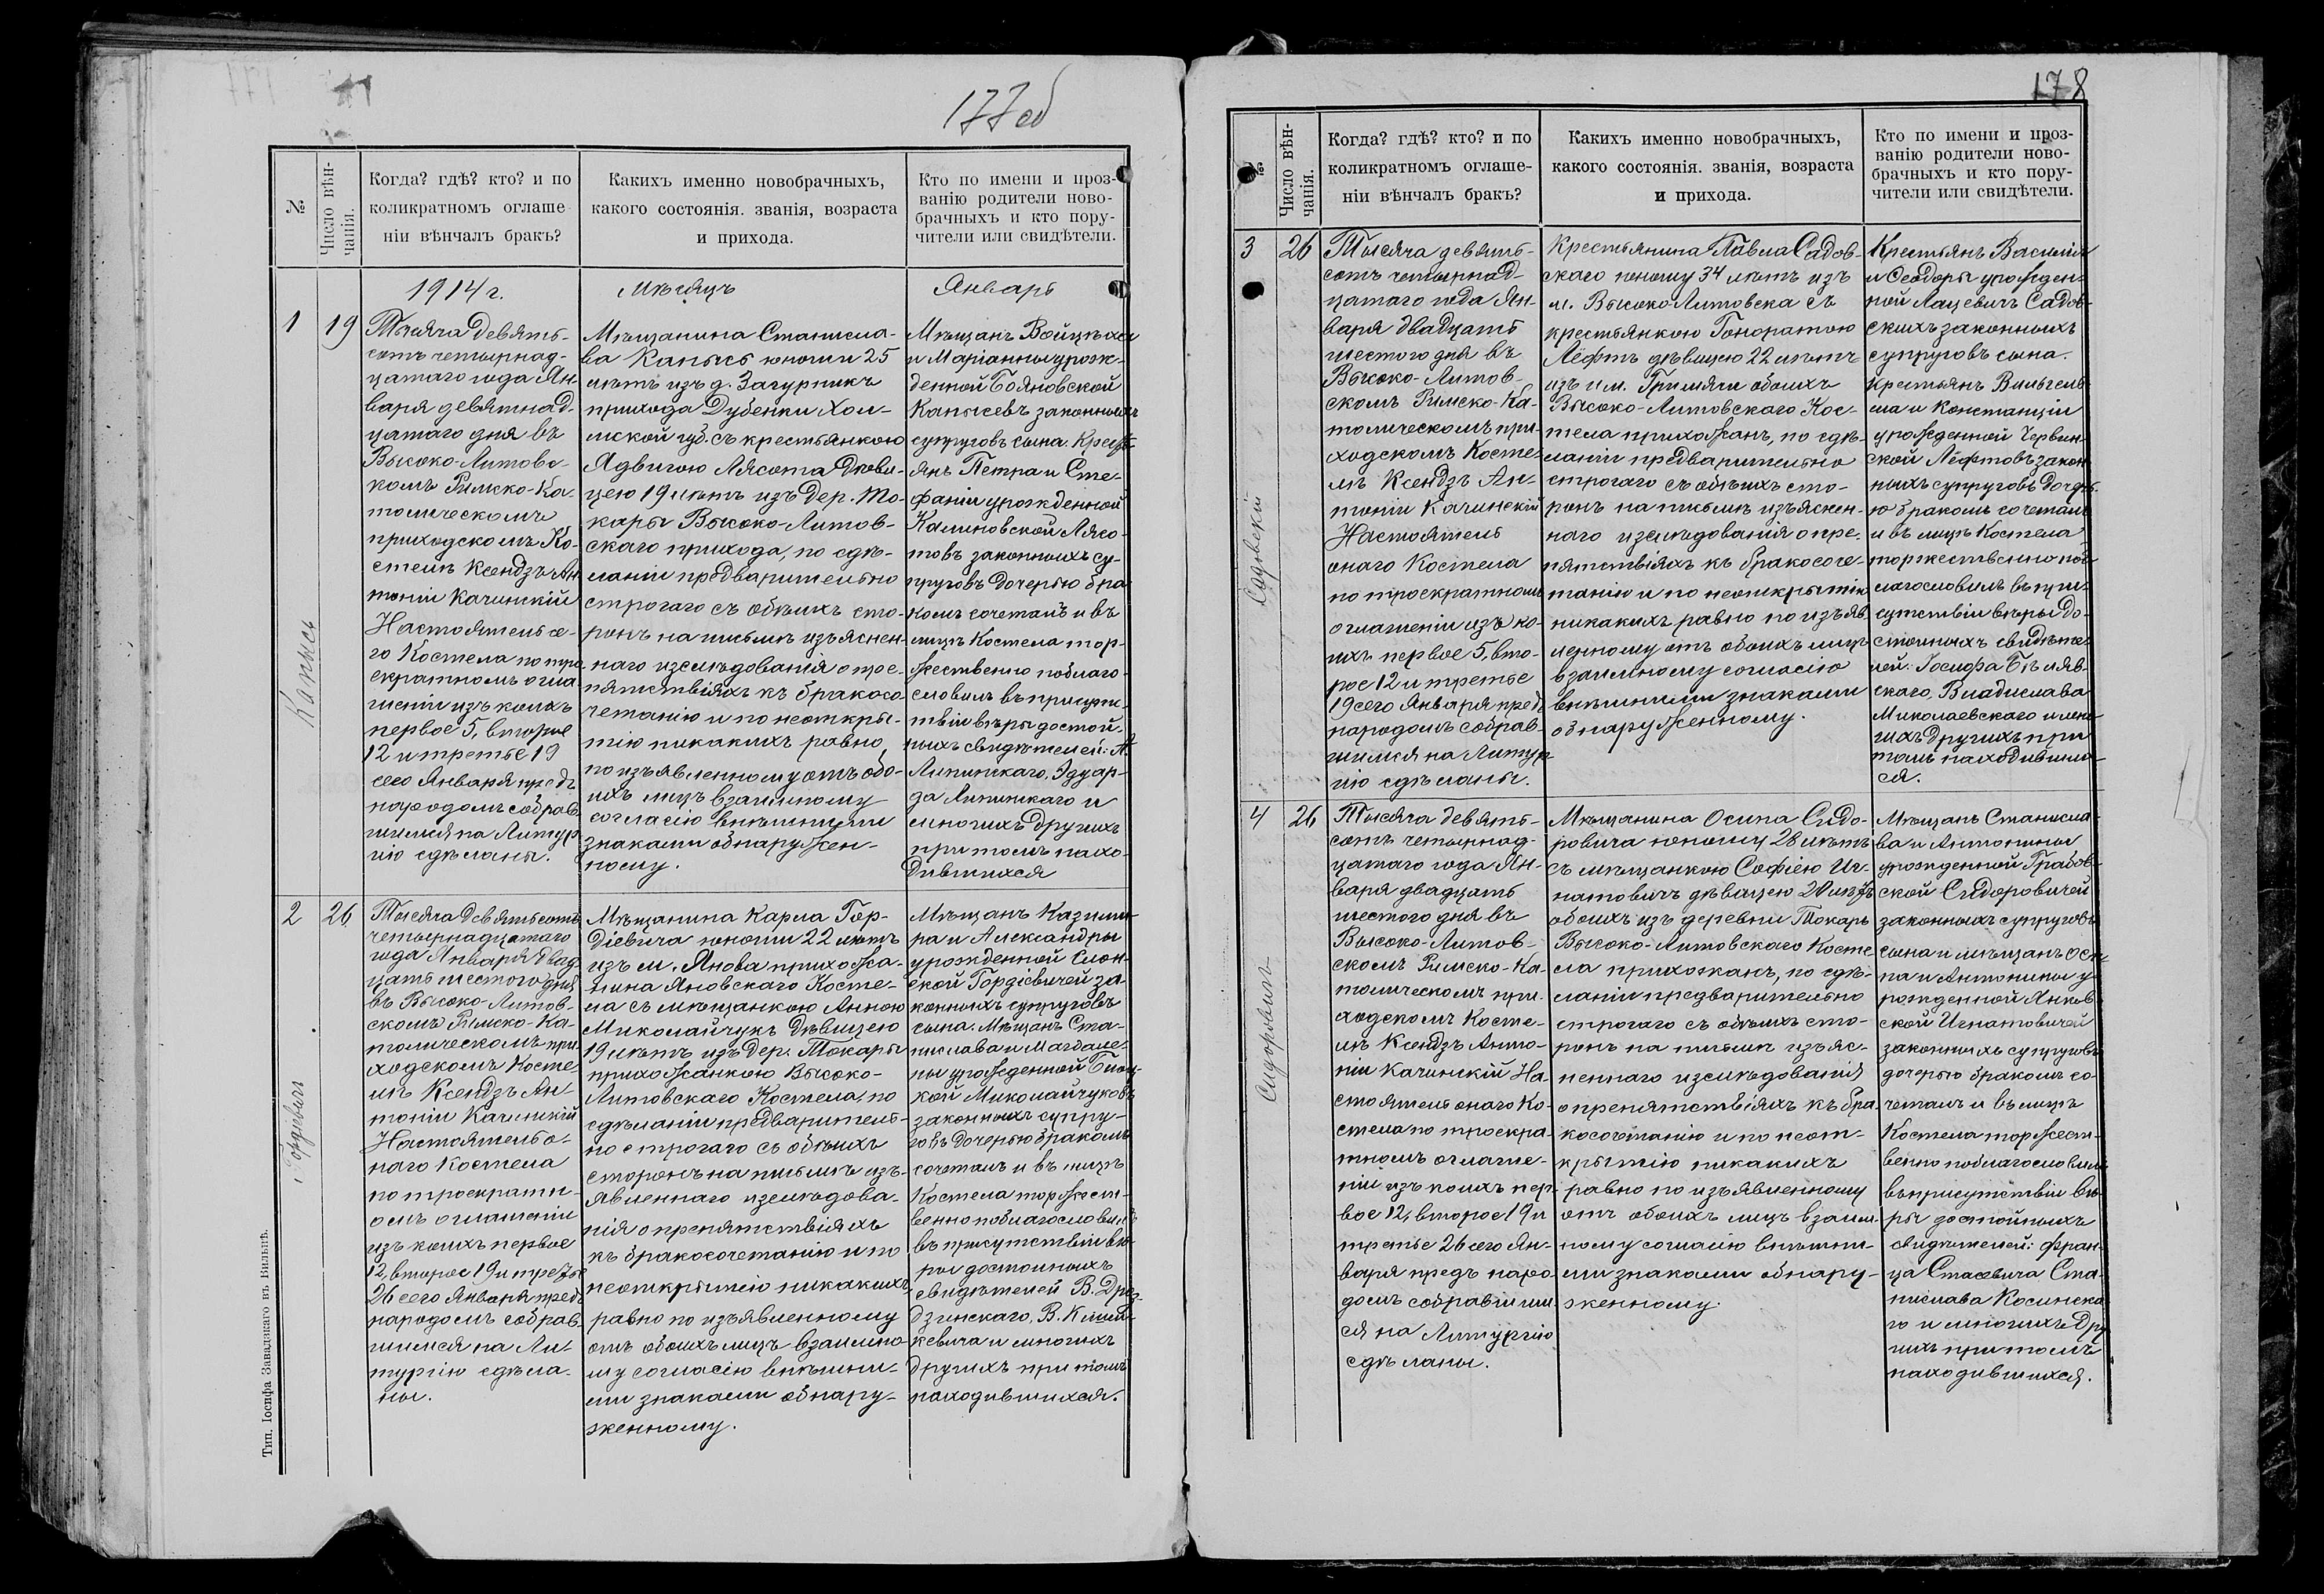 177 об
№
Число вѣн-
чанія.
Когда? гдѣ? кто? и по
коликратномъ оглаше-
ніи вѣнчалъ бракъ?
Какихъ именно новобрачныхъ,
какого состоянія. званія, возраста
и прихода.
Кто по имени и проз-
ванію родители ново-
брачныхъ и кто пору-
чители или свидѣтели.
1914 г.
Мѣсяцъ
Январь
1
19
Каньись
Тысяча девять-
сотъ четырнад-
цатаго года Ян-
варя девятнад-
цатаго дня въ
Высоко-Литовс-
комъ Римско-Ка-
толическомъ
приходскомъ Ко-
стелѣ Ксендзъ Ан
тоній Качинскій
Настоятель се-
го Костела по тро-
екратномъ огла-
шеніи изъ коихъ
первое 5, второе
12 и третье 19
сего Января предъ
народомъ собрав-
шимся на Литур
гію сдѣланы.
Мѣщанина Станисла-
ва Каньись юношу 25
лѣтъ изъ д. Загурникъ
прихода Дубенки Хол-
мской губ. съ крестьянкою
Ядвигою Лясота дѣви-
цею 19 лѣтъ изъ дер. То-
кары Высоко-Литов-
скаго прихода, по сдѣ-
ланіи предварительно
строгаго съ обѣихъ сто-
ронъ на письмѣ изъяснен-
наго изслѣдованія о пре-
пятствіяхъ къ бракосо-
четанію и по неоткры-
тію никакихъ равно
по изъявленному отъ обо-
ихъ лицъ взаимному
согласію внѣшними
знаками обнаружен-
ному.
Мѣщанъ Войцѣха
и Маріанны урож-
денной Бояновской
Каньисевъ законныхъ
супруговъ сына. Кресть
янъ Петра и Сте-
фаніи урожденной
Калиновской Лясо-
товъ законныхъ су-
пруговъ дочерью бра
комъ сочеталъ и въ
лицѣ Костела тор-
жественно поблаго-
словилъ въ присутс-
твіи вѣры достой-
ныхъ свидѣтелей: А.
Липинскаго, Эдуар-
да Липинскаго и
многихъ другихъ
при томъ нахо-
дившихся
2
26
Гордіевичъ
Тысяча девятьсотъ
четырнадцатаго
года Января двад
цать шестого дня
въ Высоко-Литов-
скомъ Римско-Ка-
толическомъ при-
ходскомъ Косте-
лѣ Ксендзъ Ан-
тоній Качинскій
Настоятель о-
наго Костела
по троекратн-
омъ оглашеніи
изъ коихъ первое
12, второе 19 и третье
26 сего Января предъ
народомъ собрав-
шимся на Ли-
тургію сдѣла-
ны.
Мѣщанина Карла Гор-
діевича юношу 22 лѣтъ
изъ м. Янова прихожа-
нина Яновскаго Косте-
ла съ мѣщанкою Анною
Миколайчукъ дѣвицею
19 лѣтъ изъ дер. Токары
прихожанкою Высоко-
Литовскаго Костела, по
сдѣланіи предваритель-
но строгаго съ обѣихъ
сторонъ на письмѣ изъ-
явленнаго изслѣдова-
нія о препятствіяхъ
къ бракосочетанію и по
неоткрытію никакихъ,
равно по изъявленному
отъ обоихъ лицъ взаимно-
му согласію внѣшни-
ми знаками обнару-
женному.
Мѣщанъ Казими-
ра и Александры
урожденной
ской Гордіевичей за-
конныхъ супруговъ
сына. Мѣщанъ Ста-
нислава и Магдале-
ны урожденной
кой Миколайчуковъ
законныхъ супру-
говъ дочерью бракомъ
сочеталъ и въ лицѣ
Костела торжест-
венно поблагословилъ
въ присутствіи вѣ-
ры достойныхъ
свидѣтелей В.
дзинскаго, В.
кевича и многихъ
другихъ при томъ
находившихся.
Тип. Іосифа Завадзкаго въ Вильнѣ.
178
№
Число вѣн-
чанія.
Когда? гдѣ? кто? и по
коликратномъ оглаше-
ніи вѣнчалъ бракъ?
Какихъ именно новобрачныхъ,
какого состоянія. званія, возраста
и прихода.
Кто по имени и проз-
ванію родители ново-
брачныхъ и кто пору-
чители или свидѣтели.
3
26
Садовскій
Тысяча девять-
сотъ четырнад-
цатаго года Ян-
варя двадцать
шестого дня въ
Высоко-Литов-
скомъ Римско-Ка-
толическомъ при-
ходскомъ Косте-
лѣ Ксендзъ Ан-
тоній Качинскій
Настоятель
онаго Костела
по троекратномъ
оглашеніи изъ ко-
ихъ первое 5, вто-
рое 12 и третье
19 сего Января предъ
народомъ собрав-
шимся на Литур
гію сдѣланы.
Крестьянина Павла Садов-
скаго юношу 34 лѣтъ изъ
м. Высоко-Литовска съ
крестьянкою Гоноратою
Лёфтъ дѣвицею 22 лѣтъ
изъ им. Гримячи обоихъ
Высоко-Литовскаго Кос-
тела прихожанъ, по сдѣ-
ланіи предварительно
строгаго съ обѣихъ сто-
ронъ на письмѣ изъяснен-
наго изслѣдованія о пре-
пятствіяхъ къ бракосоче-
танію и по неоткрытію
никакихъ равно по изъяв-
ленному отъ обоихъ лицъ
взаимному согласію
внѣшними знаками
обнаруженному.
Крестьянъ Василія
и Ѳеодоры урожден-
ной Лацевичъ Садов-
скихъ законныхъ
супруговъ сына.
Крестьянъ Вильгель-
ма и Констанціи
урожденной Червин-
ской Лёфтовъ закон
ныхъ супруговъ дочерь-
ю бракомъ сочеталъ
и въ лицѣ Костела
торжественно поб-
лагословилъ въ при-
сутствіи вѣры до-
стойныхъ свидѣте-
лей: Іосифа Бѣляв-
скаго, Владислава
Миколаевскаго и мно-
гихъ другихъ при
томъ находивших-
ся.
4
26
Сидоровичъ
Тысяча девять-
сотъ четырнад-
цатаго года Ян-
варя двадцать
шестого дня въ
Высоко-Литов-
скомъ Римско-Ка-
толическомъ при-
ходскомъ Косте-
лѣ Ксендзъ Анто-
ній Качинскій На-
стоятель онаго Ко-
стела по троекра-
тномъ оглаше-
ніи изъ коихъ пер-
вое 12, второе 19 и
третье 26 сего Ян-
варя предъ наро-
домъ собравшим
ся на Литургію
сдѣланы.
Мѣщанина Осипа Сидо-
ровича юношу 28 лѣтъ
съ мѣщанкою Софіею Иг-
натовичъ дѣвицею 20 лѣтъ
обоихъ изъ деревни Токарь
Высоко-Литовскаго Косте
ла прихожанъ, по сдѣ-
ланіи предварительно
строгаго съ обѣихъ сто-
ронъ на письмѣ изъяс-
неннаго изслѣдованія
о препятствіяхъ къ бра-
косочетанію и по неот-
крытію никакихъ
равно по изъявленному
отъ обоихъ лицъ взаим-
ному согласію внѣшни-
ми знаками обнару-
женному.
Мѣщанъ Станисла-
ва и Антонины
урожденной Грабов-
ской Сидоровичей
законныхъ супруговъ
сына и мѣщанъ Оси-
па и Антонины у-
рожденной Янков-
ской Игнатовичей
законныхъ супруговъ
дочерью бракомъ со-
четалъ и въ лицѣ
Костела торжест-
венно поблагословилъ
въ присутствіи вѣ-
ры достойныхъ
свидѣтелей: Фран-
ца Стасевича Ста-
нислава Косинска-
го и многихъ дру
гихъ при томъ
находившихся.